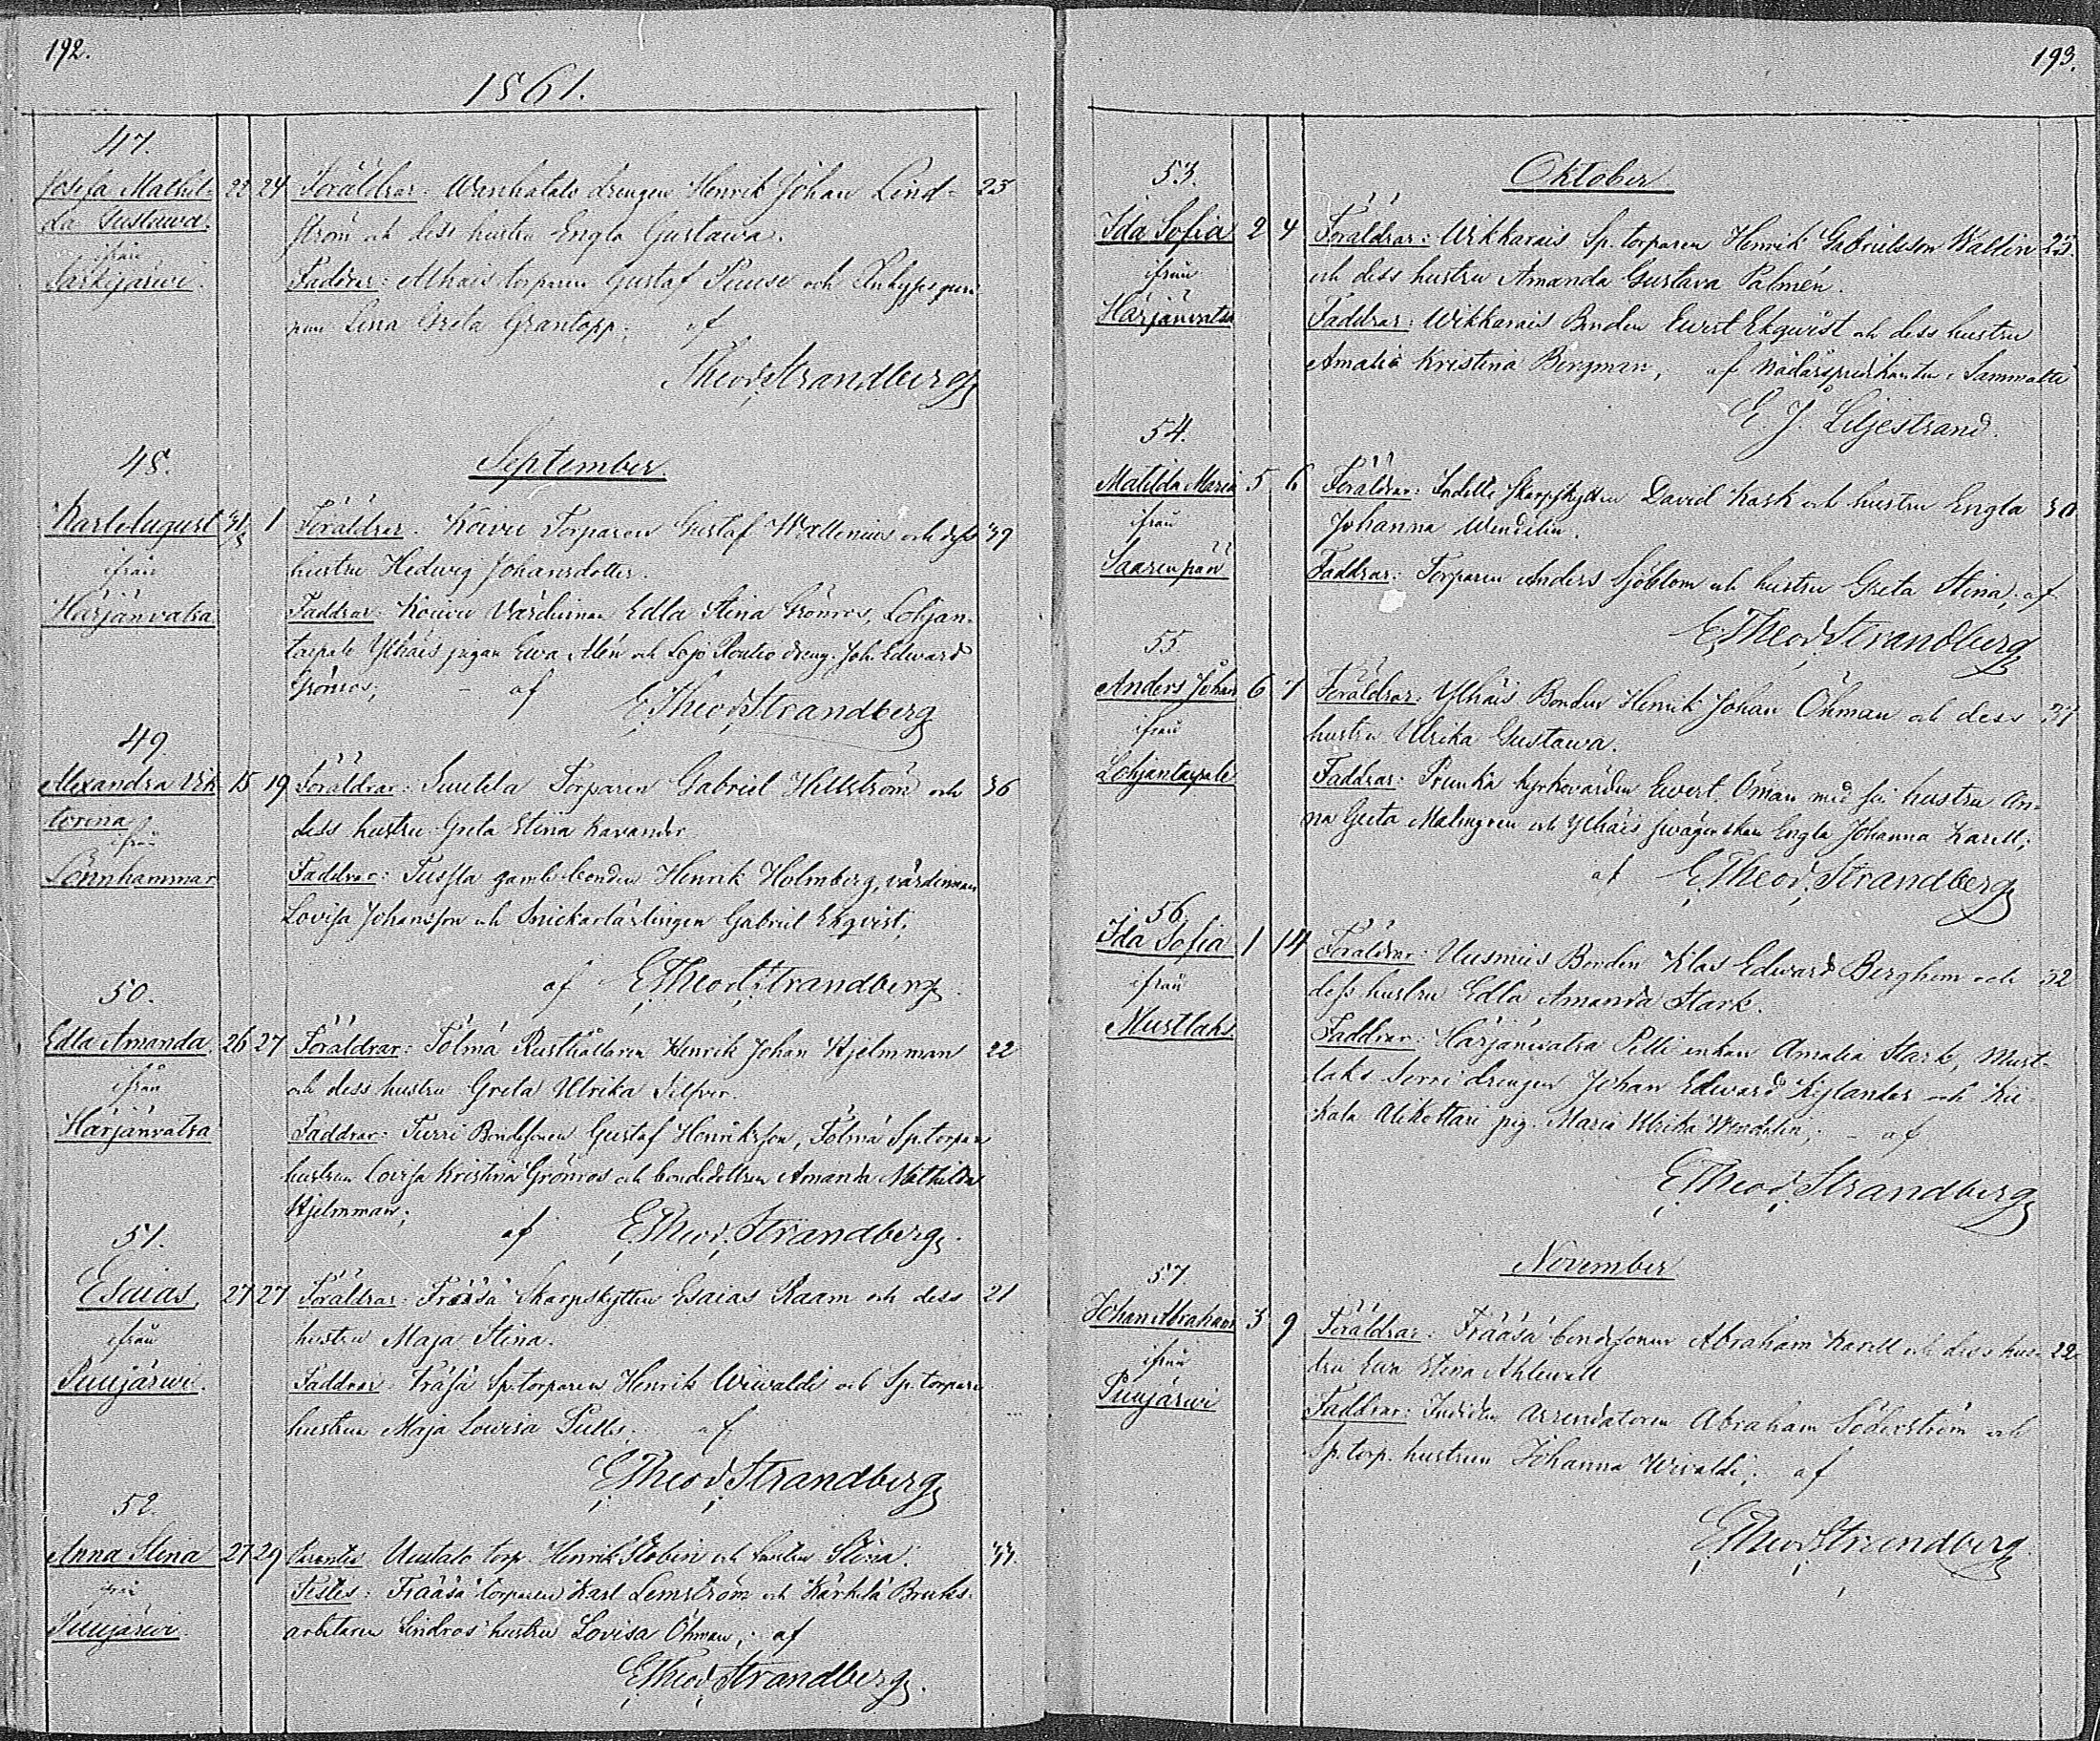 192.
1861.
47.
Josefa Mathil-
da Gustawa.
ifrån
Särkijärwi.
22 24 Föräldrar: drengen Henrik Johan Lind- 25
ström och dess hustru Engla Gustawa.
Faddrar: torparen Gustaf och
Lina Greta Grantopp; af
Theod. Strandberg
September.
48.
Karl August
ifrån
Härjänvatsa
31/8 1 Föräldrar: Koivu Torparen Gustaf Wallenius och dess 39
hustru Hedwig Johansdotter.
Faddrar: Koivu Värdinnan Edla Stina Grönros, Lohjan-
taipale Ylhäis pigan Ewa Alén och Lojo dreng. Joh. Edward
Grönros; af E. Theod. Strandberg
49
Alexandra Vik-
torina
ifrån
Lönnhammar
15 19 Föräldrar: Torparen Gabriel Hellström och 36
dess hustru Greta Stina Kavander.
Faddrar: gamle bonden Henrik Holmberg, värdinnan
Lovisa Johansson och Snickarlärlingen Gabriel Ekqvist;
af E. Theod. Strandberg.
50.
Edla Amanda
ifrån
Härjänvatsa
26 27 Föräldrar: Tölmä Rusthållaren Henrik Johan Hjelmman 22
och dess hustru Greta Ulrika Silfver.
Faddrar: Turri Bondesonen Gustaf Henriksson, Tölmä Sp.torpare
hustrun Lovisa Kristina Grönros och bondedottren Amanda Mathilda
Hjelmman; af E. Theod. Strandberg.
51.
Esaias,
ifrån
Puujärwi.
27 27 Föräldrar: Frääsä Skarpskytten Esaias Raam och dess 21
hustru Maja Stina.
Faddrar: Fräsä Sp.torparen Henrik Wiwaldi och Sp.torpare
hustrun Maja Lowisa; af
E. Theod. Strandberg
52.
Anna Stina
ifrån
Puujärwi.
27 29 Parentes: Uustalo torp. Henrik och hustru Stina. 33
Testes: Frääsä torparen Karl Lemström och Kärkelä Bruks-
arbetaren Lindros hustru Lovisa Öhman; af
E. Theod. Strandberg.
193.
Oktober
53.
Ida Sofia
ifrån
Härjänvatsa
2 4 Föräldrar: Wikkarais Sp. torparen Henrik Gabrielsson Wallin 25.
och dess hustru Amanda Gustava Palmén.
Faddrar: Wikkarais Bonden Ewert Ekqwist och dess hustru
Amalia Kristina Bergman, af Nådårspredikanten i Sammatti
E. J. Liljestrand.
54.
Matilda Maria
ifrån
Saarenpää
5 6 Föräldrar: Indelte Skarpskytten David Rask och hustru Engla 30
Johanna Wendelin.
Faddrar: Torparen Anders Sjöblom och hustru Greta Stina, af
E. Theod. Strandberg
55.
Anders Johan
ifrån
Lohjantaipale
6 7 Föräldrar: Ylhäis Bonden Henrik Johan Öhman och dess 37
hustru Ulrika Gustawa.
Faddrar: Prunka kyrkovärden Ewert Öman med sin hustru An-
na Greta Malmgren och Ylhäis svägerskan Engla Johanna Karell;
af E. Theod. Strandberg
56.
Ida Sofia
ifrån
Mustlaks
1 14 Föräldrar: Uusmiis Bonden Klas Edward Berghem och 32
dess hustru Edla Amanda Stark.
Faddrar: Härjänvatsa Pelli enkan Amalia Stark, Must-
laks drengen Johan Edward Kijlander och Kii-
kala Alikottari pig. Maria Ulrika Wendelin; af
E. Theod. Strandberg
November
57.
Johan Abraham
ifrån
Puujärwi
3 9 Föräldrar: Frääsä bondesonen Abraham Karell och dess hus- 22
tru Ewa Stina Ahlewall
Faddrar: Arrendatoren Abraham Söderström och
Sp. torp. hustrun Johanna Wivaldi; af
E. Theod. Strandberg.